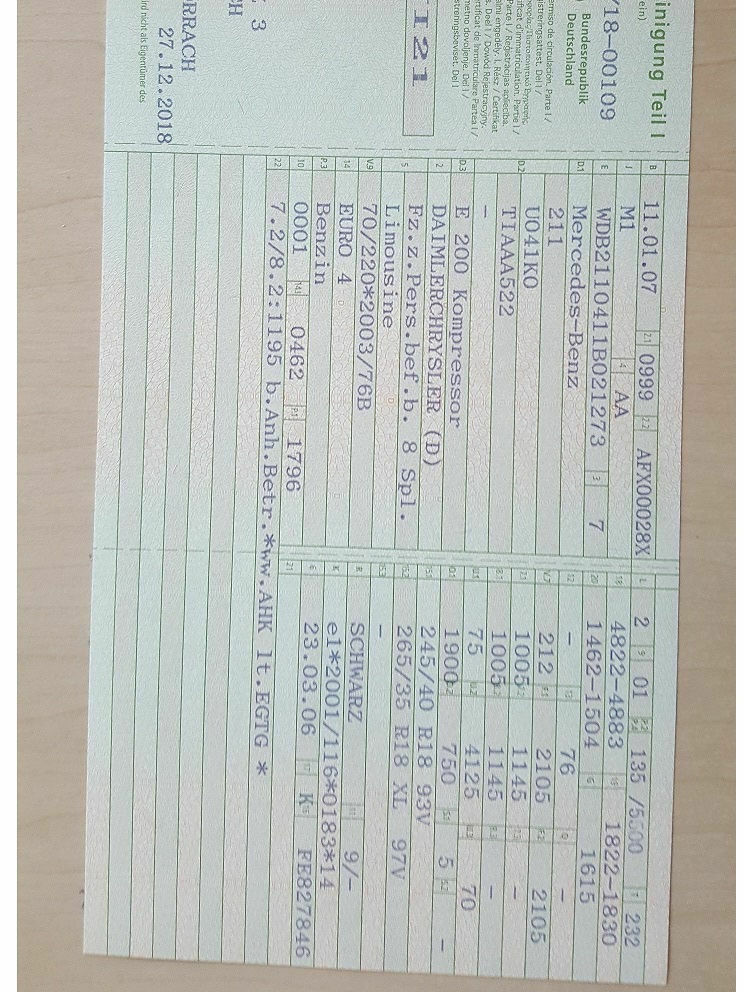 inigung Teil I
ein)
/18-00109
Bundesrepublik
Deutschland
ermiso de circulación. Parte I /
Registrácijas apliecība.
I. Rész / Certifikat
Dowód Rejestracyjny.
Parte I /
121
E 3
CH
RRACH
27.12.2018
ird nicht als Eigentümer des
B 11.01.07 2.1 0999 2.2 AFX00028X
J M1 4 AA
E WDB2110411B021273 3 7
D.1 Mercedes-Benz
211
D.2 U041K0
TIAAA522
-
D.3 E 200 Kompressor
2 DAIMLERCHRYSLER (D)
5 Fz.z.Pers.bef.b. 8 Spl.
Limousine
V.9 70/220*2003/76B
14 EURO 4
P.3 Benzin
10 0001 14.1 0462 P.1 1796
22 7.2/8.2:1195 b.Anh.Betr.*ww.AHK lt.EGTG *
L 2 9 01 P.2 P.4 135 /5500 T 232
18 4822-4883 19 1822-1830
20 1462-1504 G 1615
12 - 13 76 Q -
V.7 212 F.1 2105 F.2 2105
7.1 1005 7.2 1145 7.3 -
8.1 1005 8.2 1145 8.3 -
U.1 75 U.2 4125 U.3 70
O.1 1900 O.2 750 S.1 5 S.2 -
15.1 245/40 R18 93V
15.2 265/35 R18 XL 97V
15.3 -
R SCHWARZ 11 9/-
K e1*2001/116*0183*14
6 23.03.06 17 K 16 FE827846
21